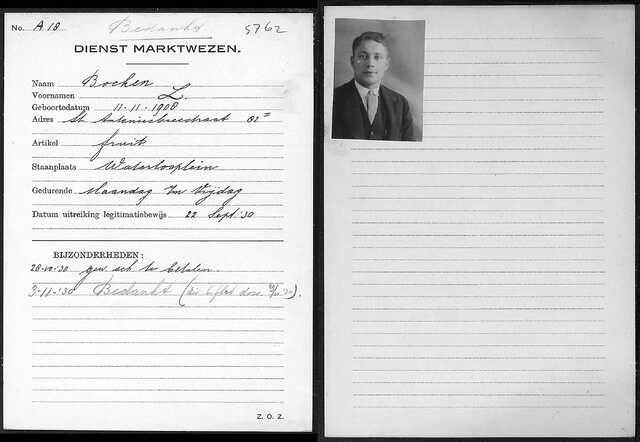 No. A 18 Bedankt 5762
DIENST MARKTWEZEN.
Naam Bochen
Voornamen L.
Geboortedatum 11-11-1908
Adres St. Antoniebreestraat 82
Artikel fruit
Staanplaats Waterlooplein
Gedurende Maandag t/m Vrijdag
Datum uitreiking legitimatiebewijs 22 Sept. '30
BIJZONDERHEDEN:
28-10-'30 gew. sch. te betalen.
3-11-'30 Bedankt (zie
Z. O. Z.